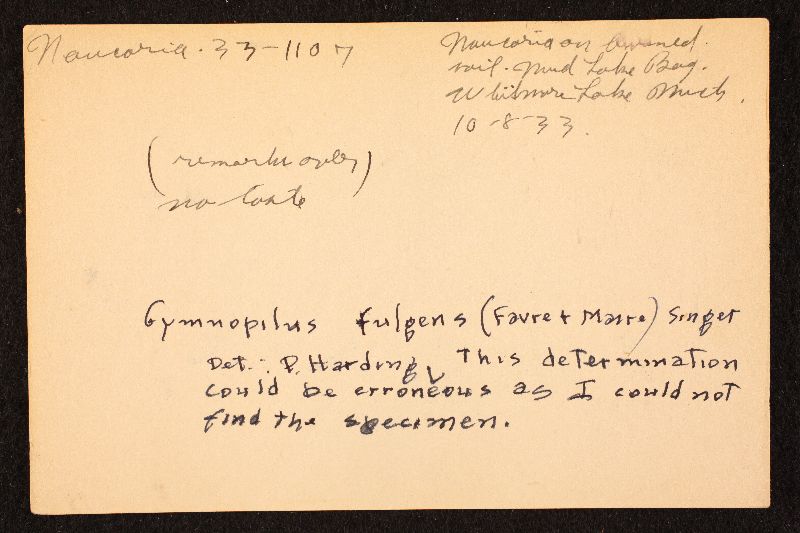 Naucoria. 33-1107
Naucoria on burned
soil. Mud Lake Bog.
Whitmore Lake Mich.
10-8-33.
(remarks only)
no taste
Gymnopilus fulgens (Favre & Maire) Singer
Det.: P. Harding, This determination
could be erroneous as I could not
find the specimen.